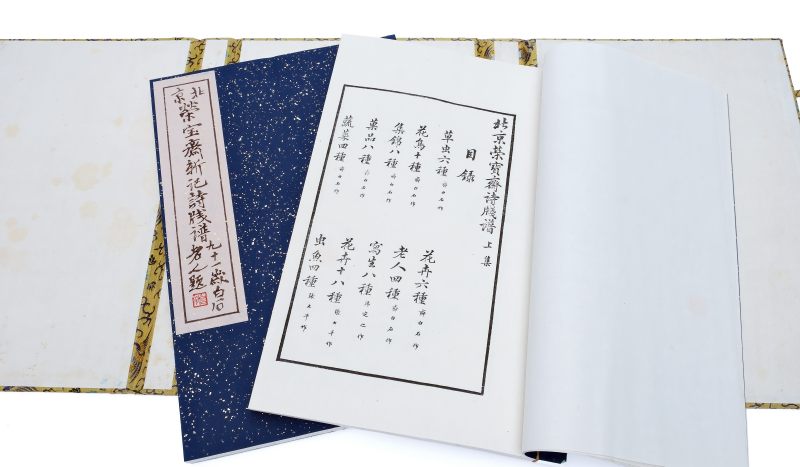 北京
榮宝齋新记詩牋譜
九十一歲白石
老人題
北京榮寶齋诗牋谱 上集
目錄
草虫六種 齊白石作 花卉六種 齊白石作
花鳥十種 齊白石作 老人四種 齊白石作
集錦八種 齊白石作 寫生八種
菓品八種 齊白石作 花卉十八種
蔬菜四種 齊白石作 虫魚四種